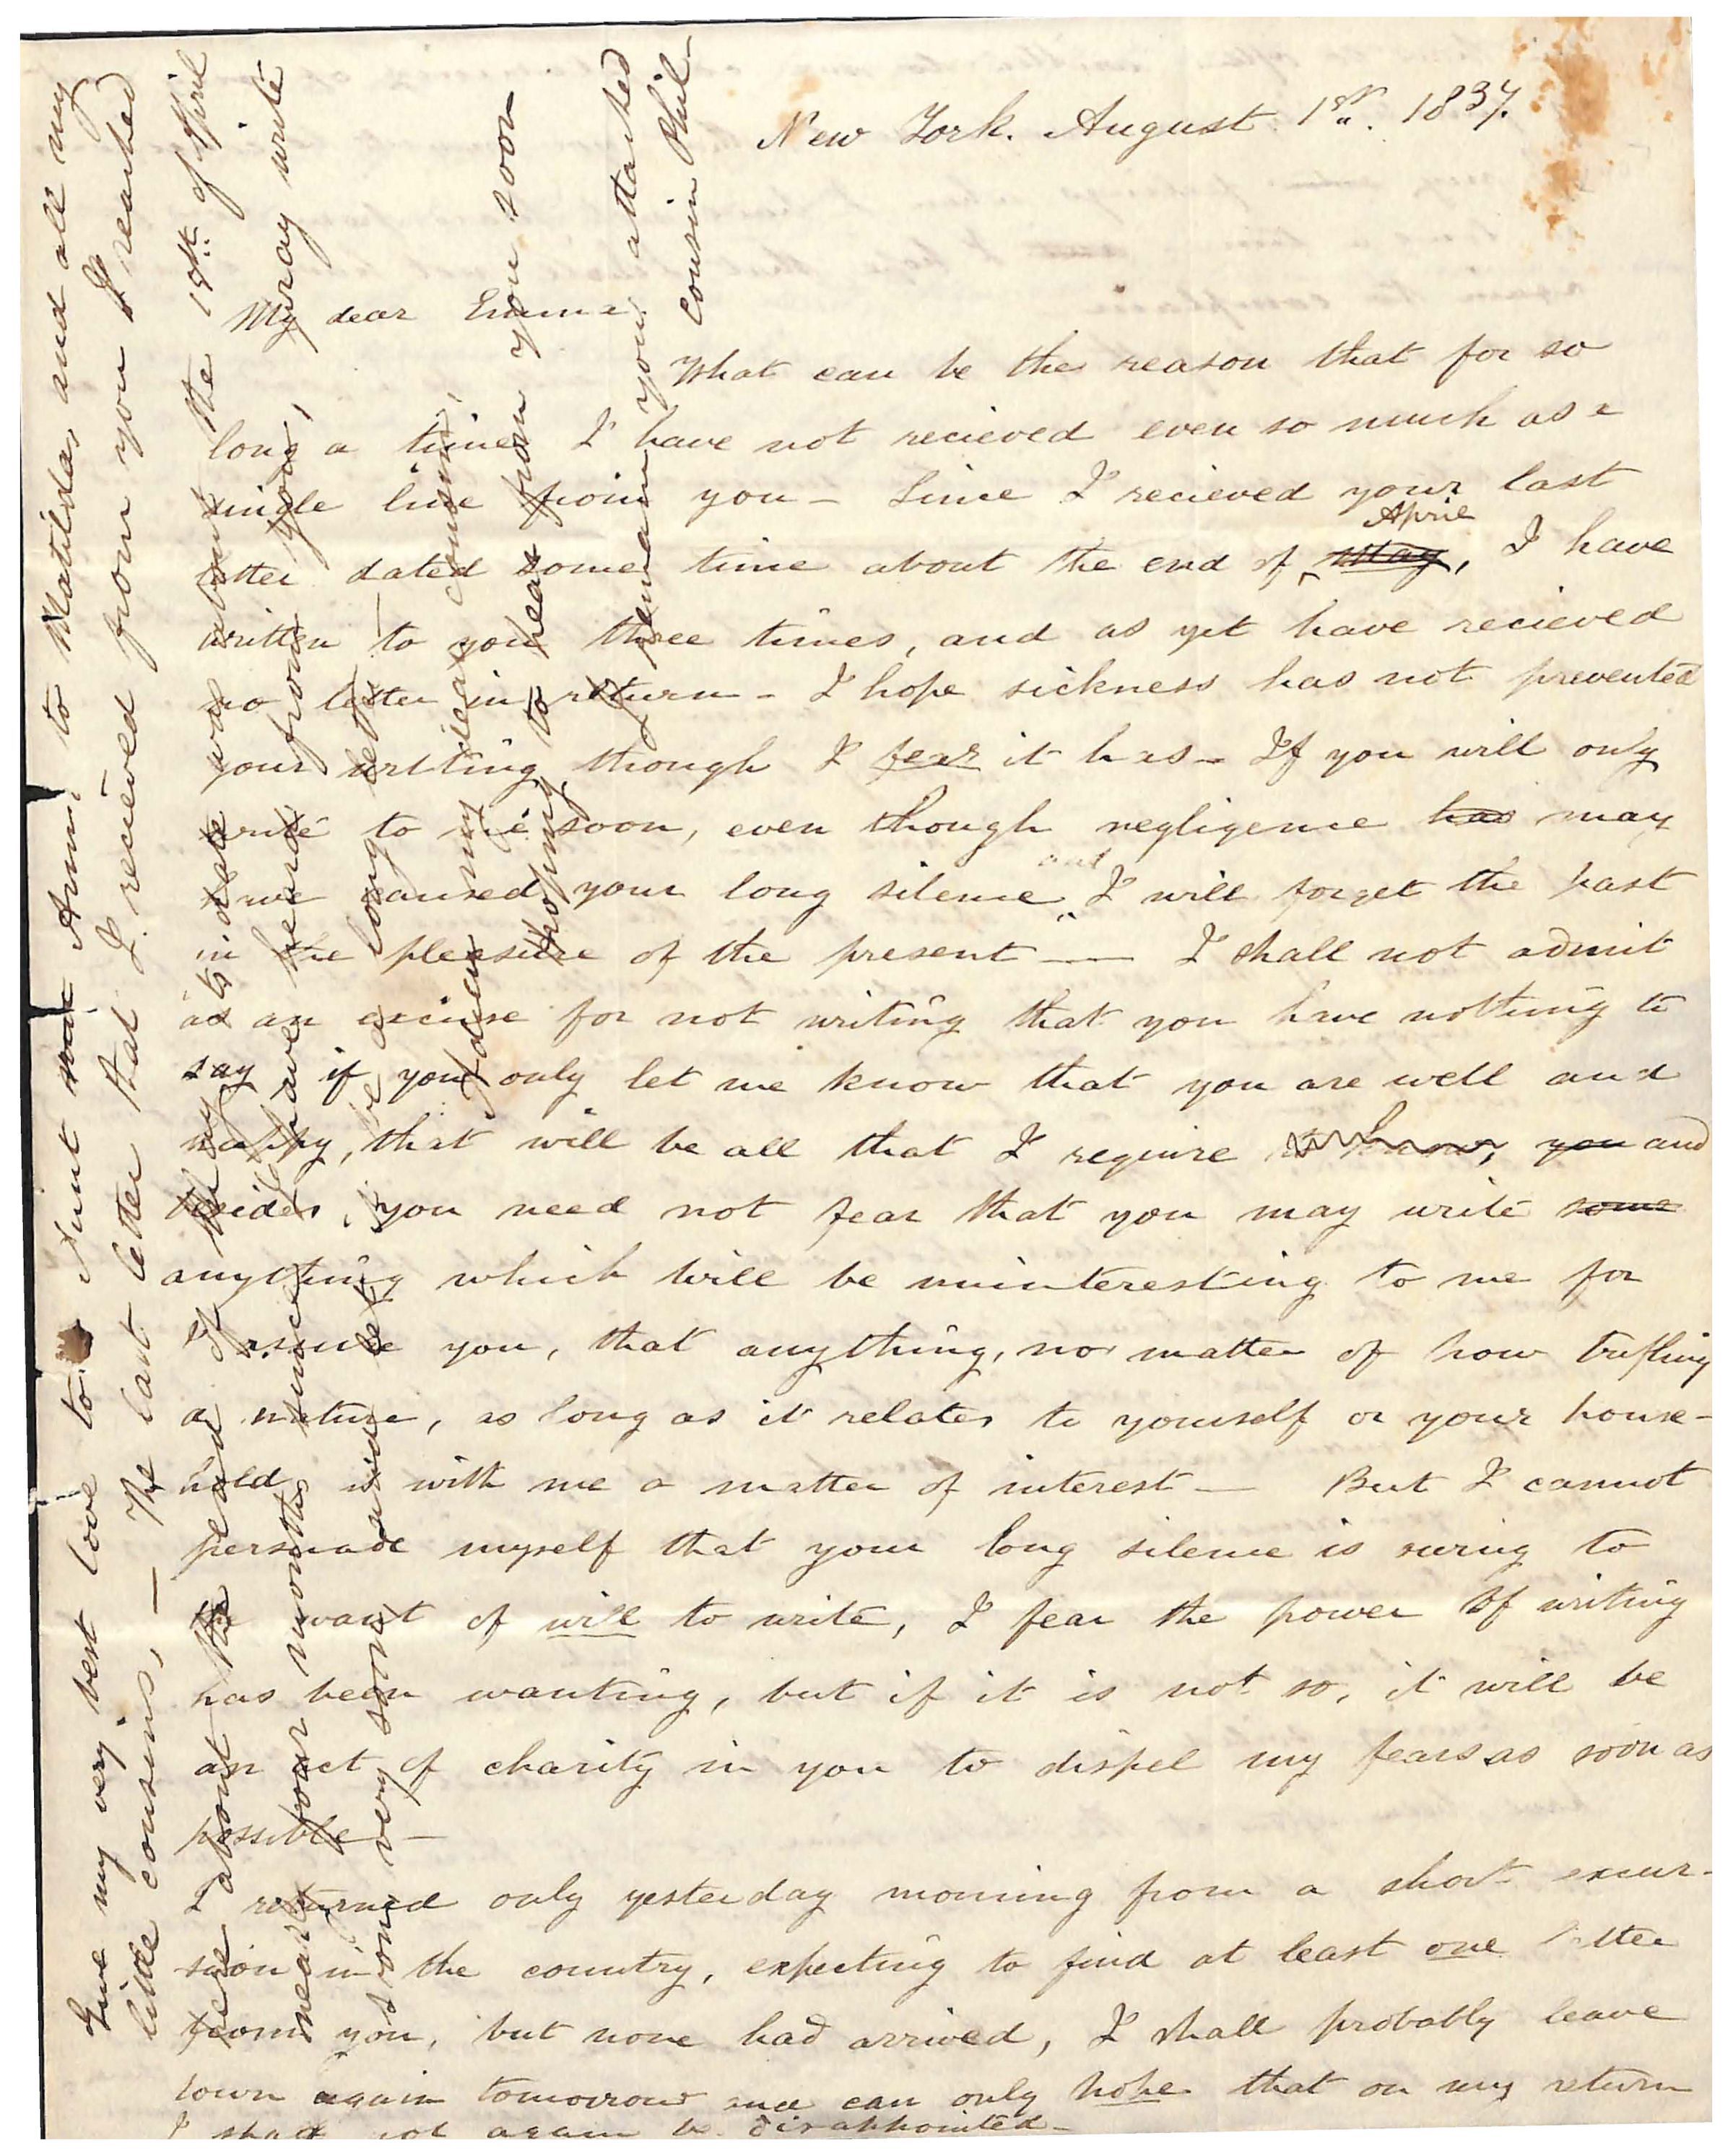 New York. August 1st. 1837.
My dear Emma
What can be the reason that for so
long a time I have not recieved even so much as a
single line from you - Since I recieved your last
letter dated some time about the end of May, April I have
written to you three times, and as yet have recieved
no letter in return - I hope sickness has not prevented
your writting though I fear it has - If you will only
write to me soon, even though negligence has may
have caused your long silence, and I will forget the past
in the pleasure of the present — I shall not admit
as an excuse for not writing that you have nothing to
say if you only let me know that you are well and
happy, that will be all that I require to know, you and
besides, you need not fear that you may write some
anything which will be uninteresting to me for
I assure you, that anything, no matter of how trifling
a nature, as long as it relates to yourself or your house-
hold, is with me a matter of interest — But I cannot
persuade myself that your long silence is owing to
the want of will to write, I fear the power of writing
has been wanting, but if it is not so, it will be
an act of charity in you to dispel my fears as soon as
possible —
I returned only yesterday morning from a short excur-
sion in the country, expecting to find at least one letter
from you, but none had arrived, I shall probably leave
town again tomorrow and can only hope that on my return
I shall not again be disappointed -
Give my very best love to Aunt Ann, to Matilda, and all my
little cousins, — The last letter that I recieved from you I reached
here about the end of May its date was about the 18th. of April
near four months since I have heard from you, pray write
soon very soon and let it be a long letter —
Adieu my dear cousin,
hoping to hear from you soon
I remain your attached
Cousin Phil-